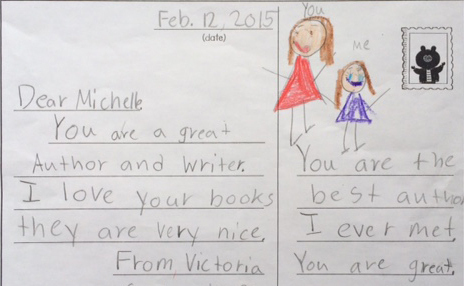 Feb. 12, 2015
(date)
Dear Michelle
You are a great
Author and writer.
I love your books
they are very nice.
From Victoria
You
me
You are the
best author
I ever met.
You are great.